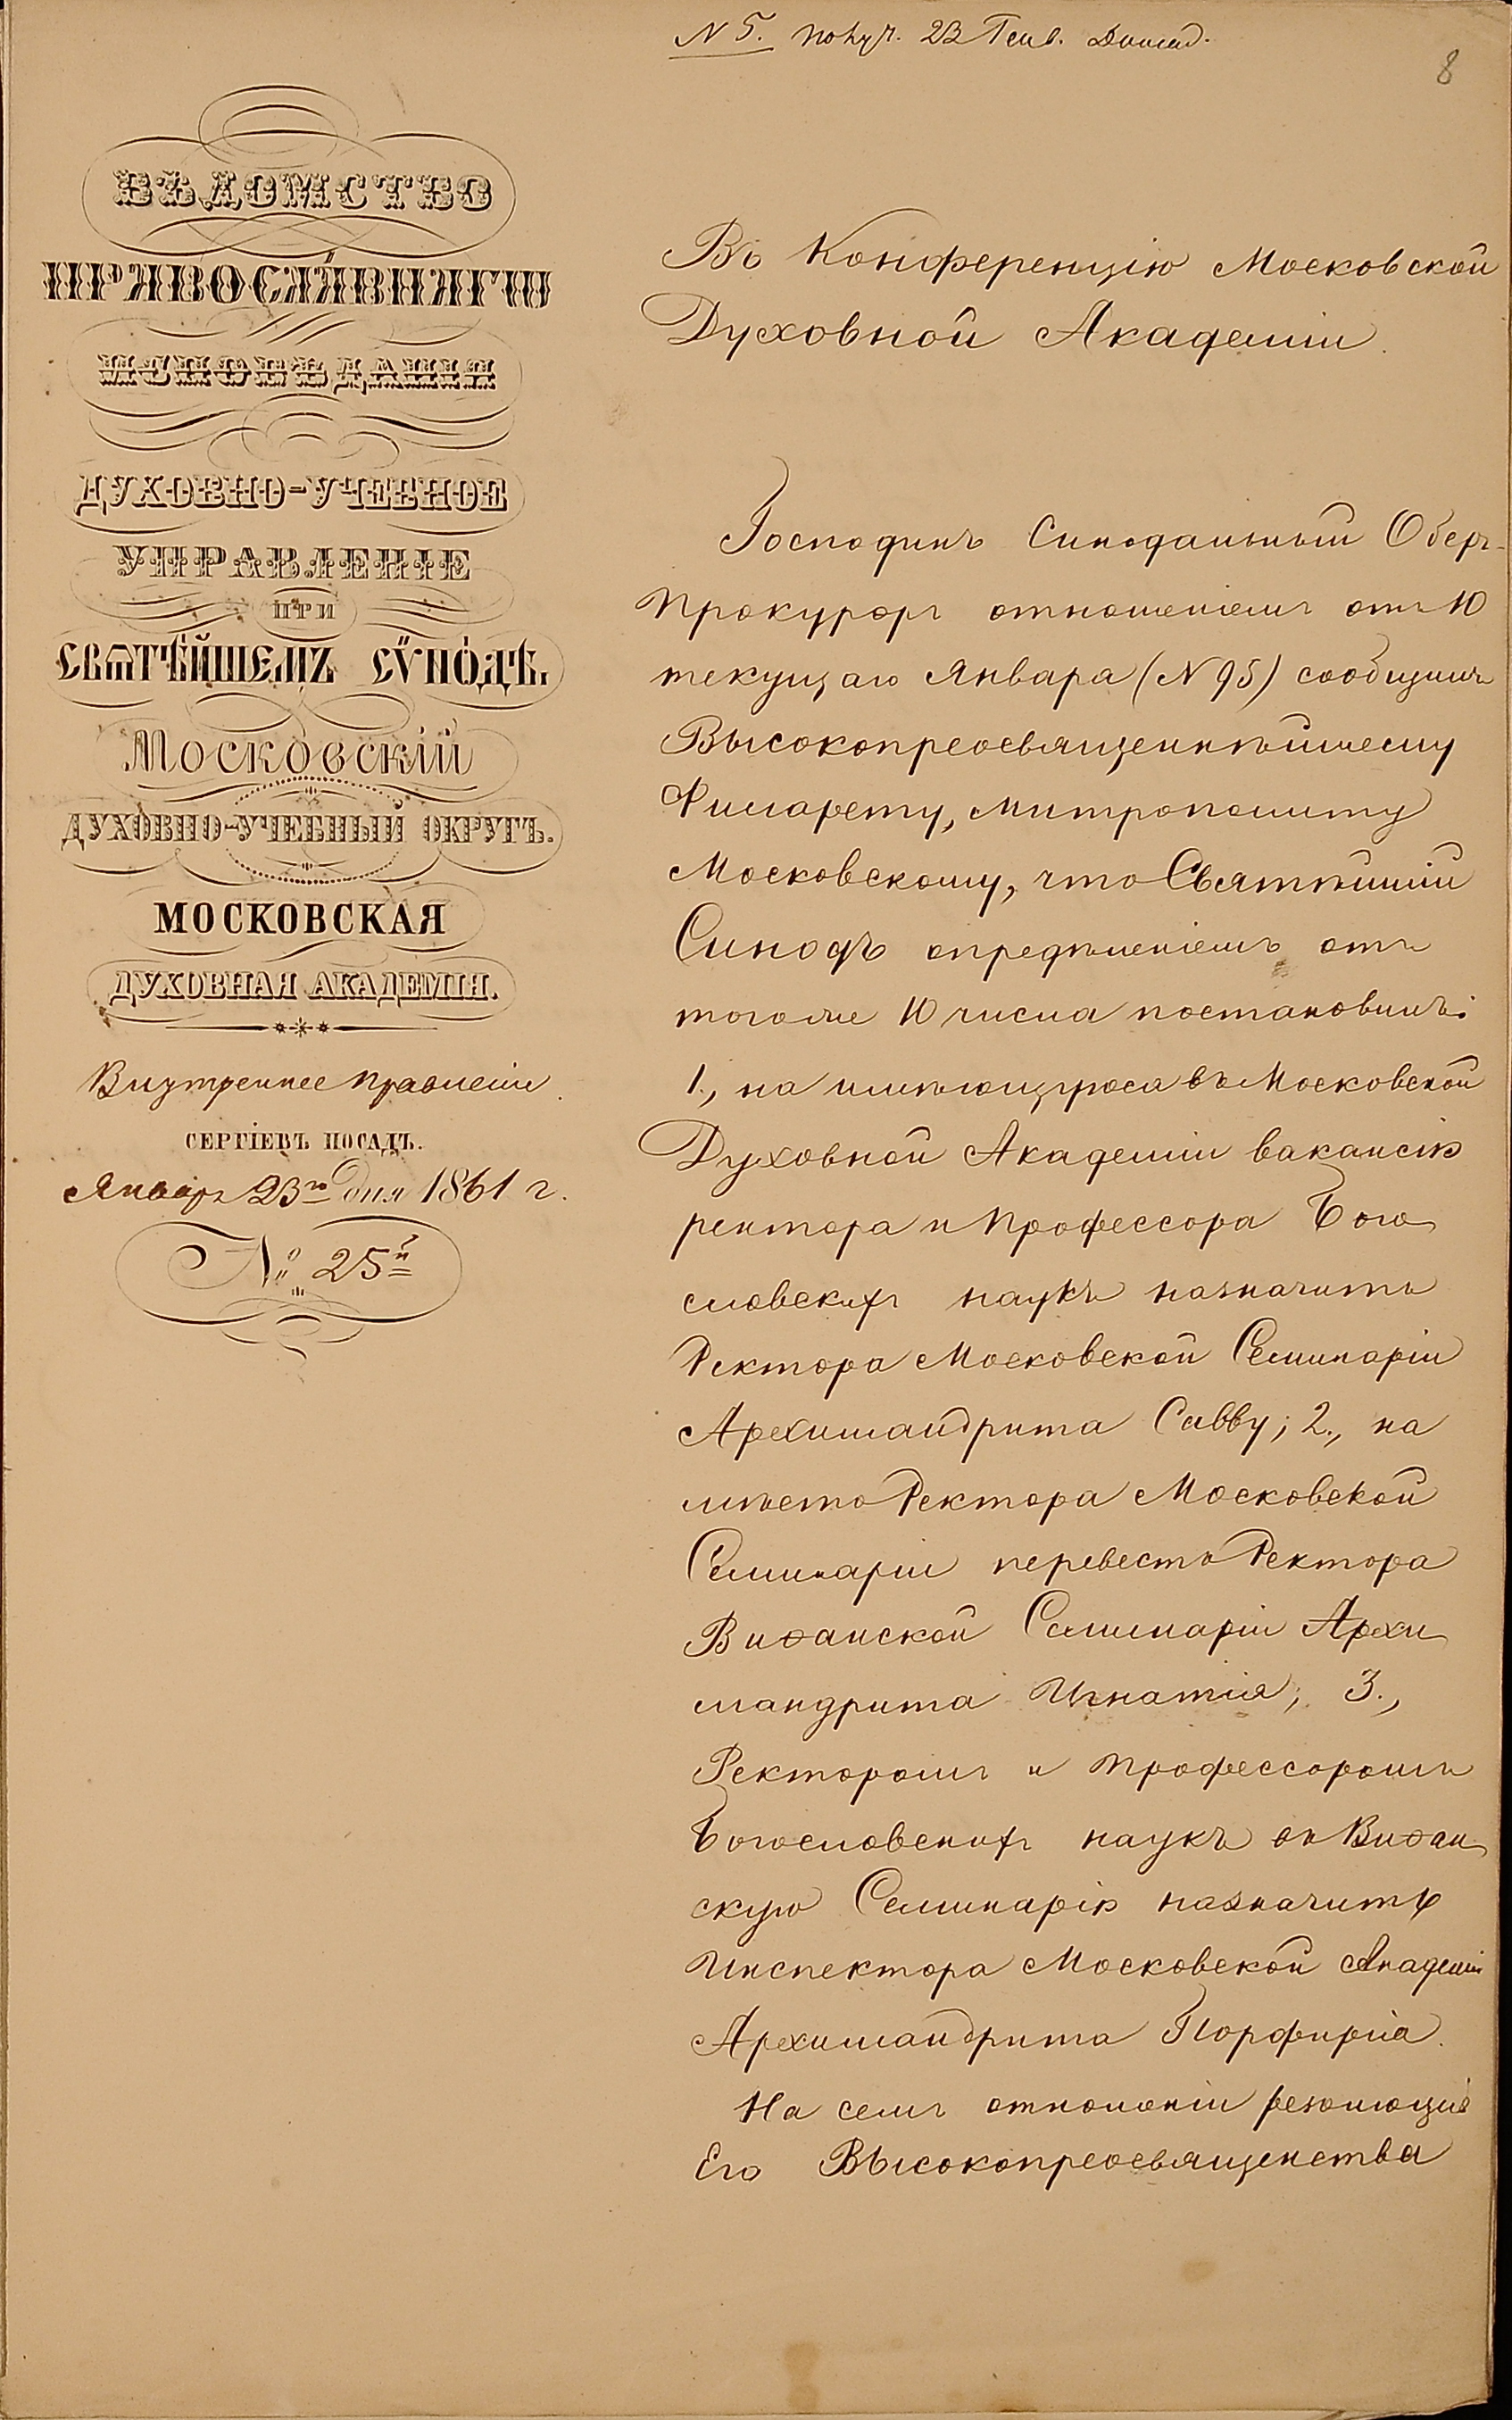 N 5. получ. 23 Генв. Доклад.
8
ВѢДОМСТВО
ПРАВОСЛА́ВНАГѠ
ИСПОВѢДАНІЯ
ДУХОВНО-УЧЕБНОЕ
УПРАВЛЕНІЕ
ПРИ
СВѦТѢ́ЙШЕМЪ СѴНО́ДѢ.
Московскій
ДУХОВНО-УЧЕБНЫЙ ОКРУГЪ.
МОСКОВСКАЯ
ДУХОВНАЯ АКАДЕМІЯ.
Внутреннее правленіе.
СЕРГІЕВЪ ПОСАДЪ.
Январь 23го дня 1861 г.
№ 25й
Въ Конференцію Московской
Духовной Академіи.
Господинъ Синодальный Оберъ-
Прокуроръ отношеніемъ отъ 10
текущаго Января (N 95) сообщилъ
Высокопреосвященнѣйшему
Филарету, Митрополиту
Московскому, что Святѣйшій
Синодъ опредѣленіемъ отъ
тогоже 10 числа постановилъ:
1., на имѣющуюся въ Московской
Духовной Академіи вакансію
ректора и Профессора Бого
словскихъ наукъ назначить
Ректора Московской Семинаріи
Архимандрита Савву; 2., на
мѣсто Ректора Московской
Семинаріи перевесть Ректора
Виѳанской Семинаріи Архи
мандрита Игнатія; 3.,
Ректоромъ и Профессоромъ
Богословскихъ наукъ въ Виѳан
скую Семинарію назначить
Инспектора Московской Академіи
Архимандрита Порфирія.
На семъ отношеніи резолюція
Его Высокопреосвященства